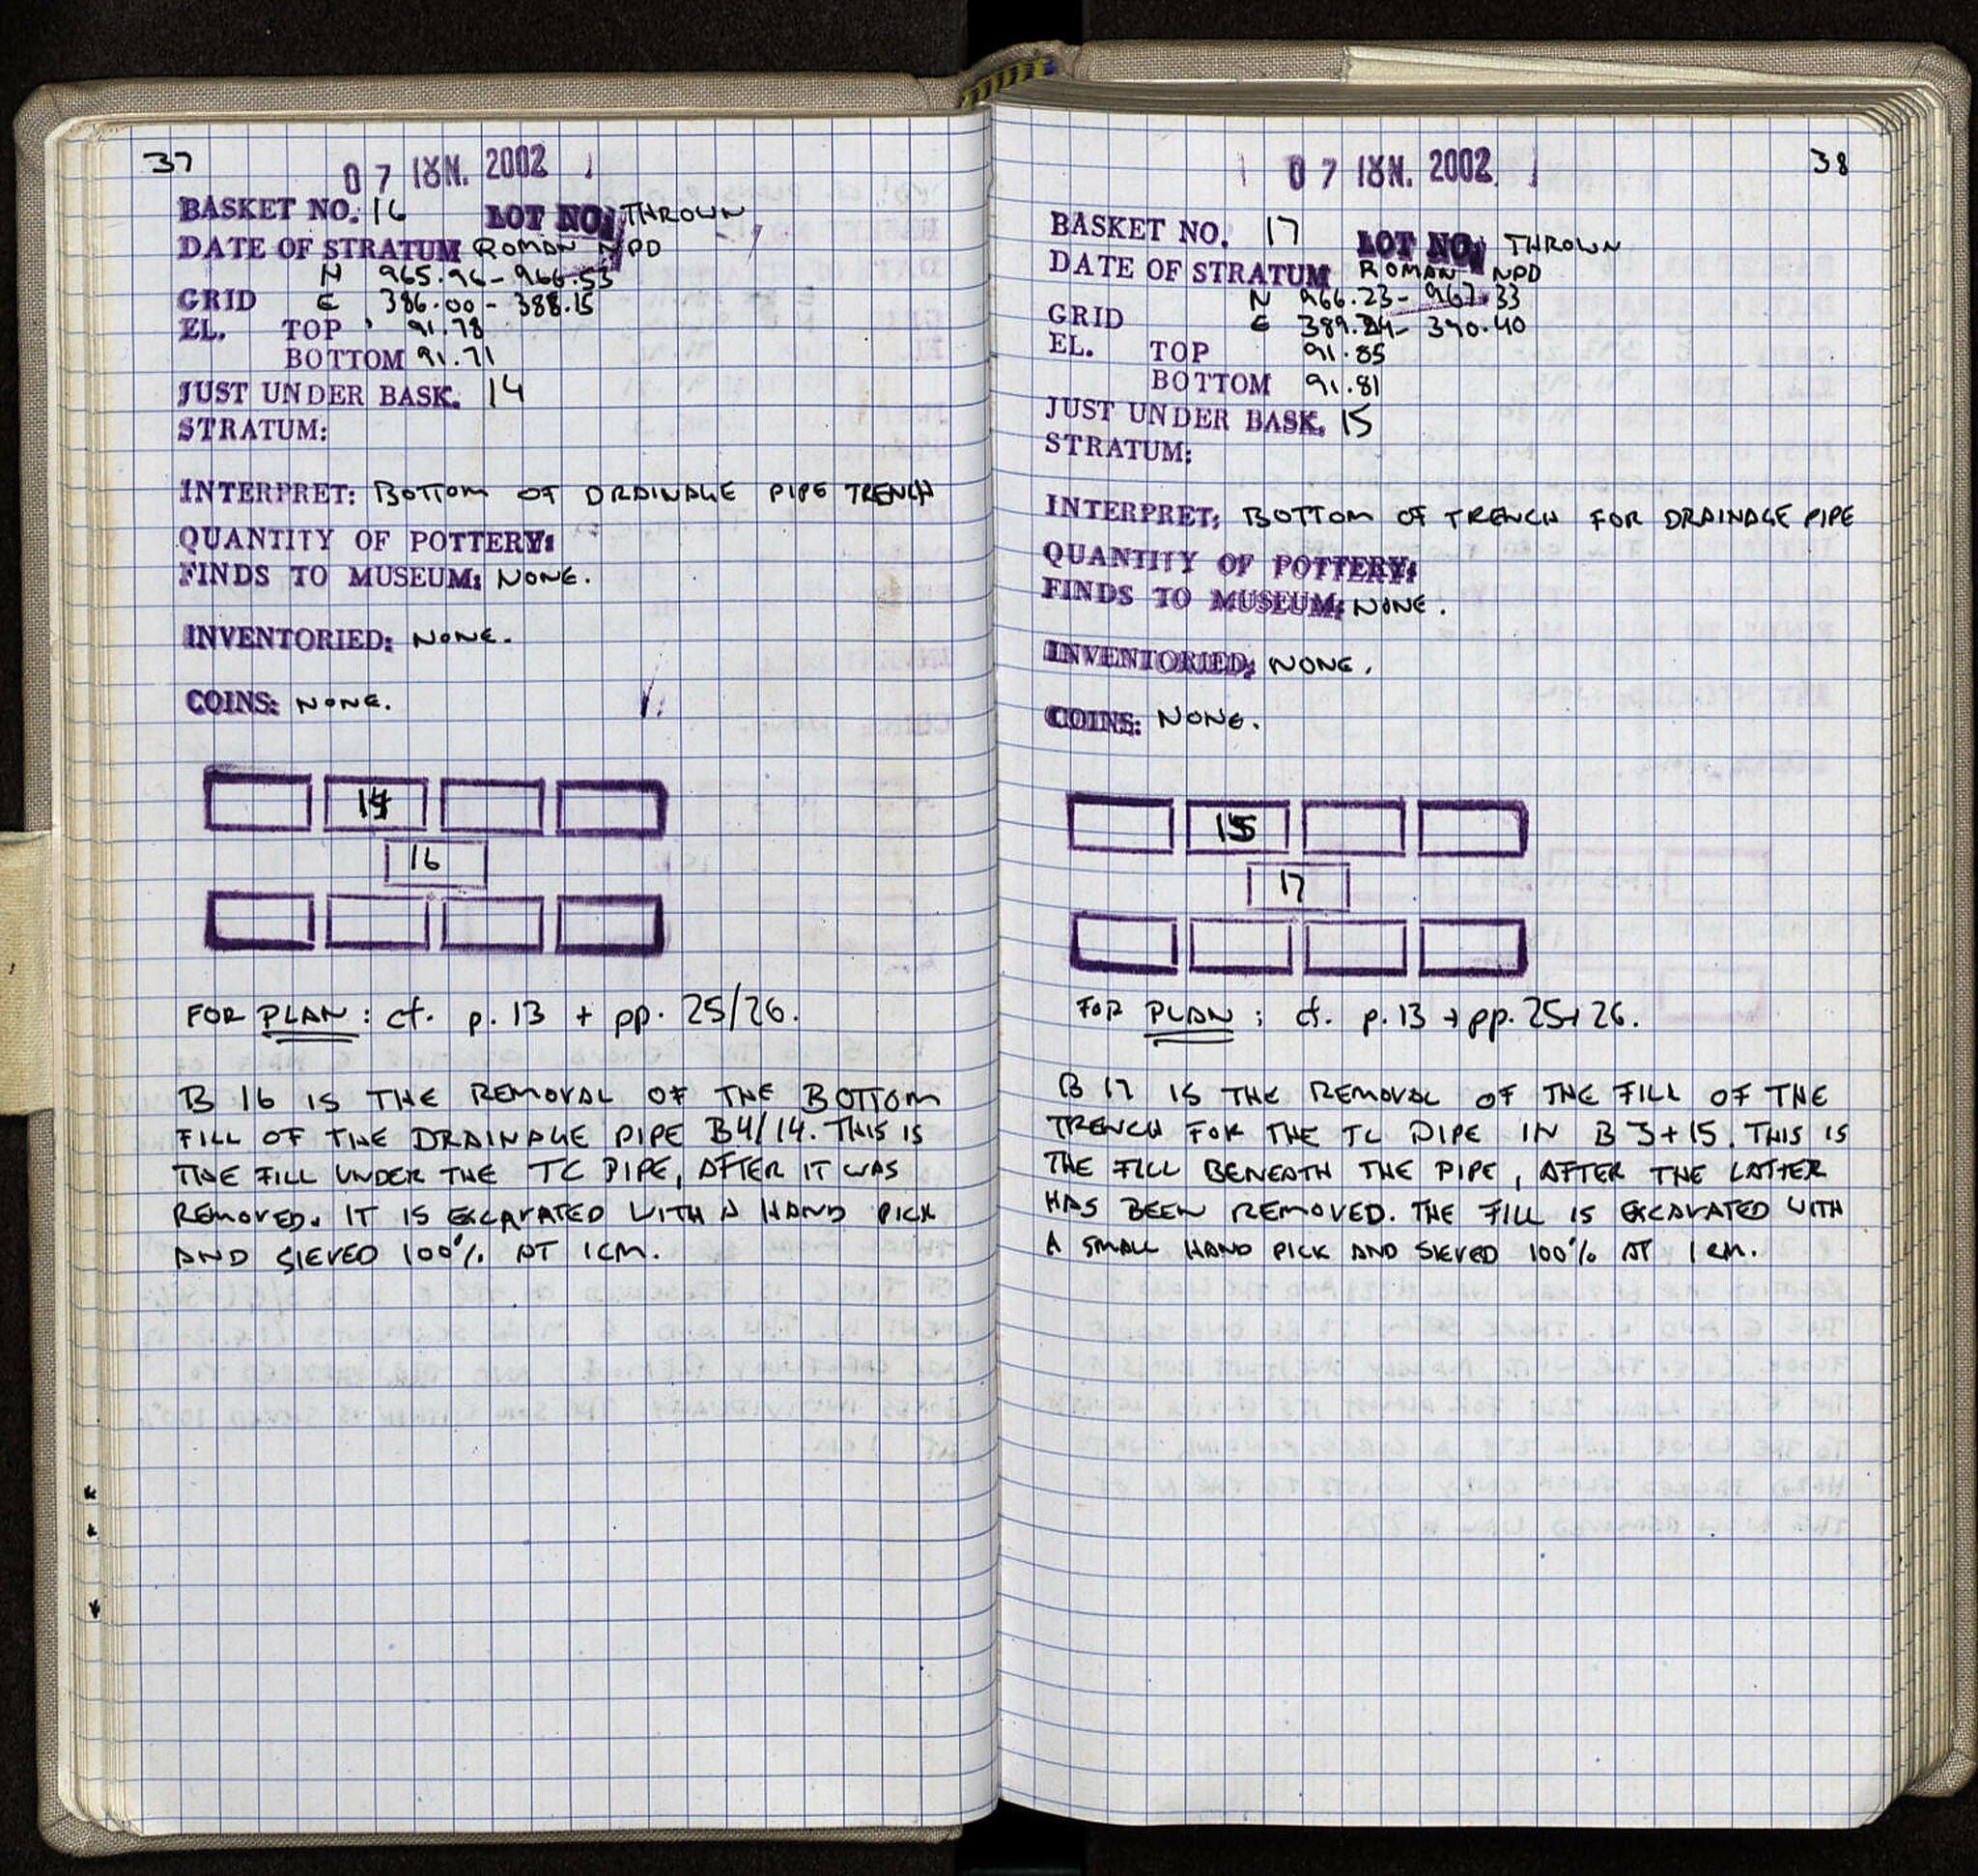 37
07 ΙΟΥΝ. 2002
BASKET NO. 16 LOT NO. THROWN
DATE OF STRATUM ROMAN NPD
N 965.96-966.53
GRID E 386.00-388.15
EL. TOP 91.78
BOTTOM 91.71
JUST UNDER BASK. 14
STRATUM:
INTERPRET: BOTTOM OF DRAINAGE PIPE TRENCH
QUANTITY OF POTTERY:
FINDS TO MUSEUM: NONE.
INVENTORIED: NONE.
COINS: NONE.
14
16
FOR PLAN: cf. p.13 + pp. 25/26.
B 16 IS THE REMOVAL OF THE BOTTOM
FILL OF THE DRAINAGE PIPE B4/14. THIS IS
THE FILL UNDER THE TC PIPE, AFTER IT WAS
REMOVED. IT IS EXCAVATED WITH A HAND PICK
AND SIEVED 100% AT 1CM.
38
07 ΙΟΥΝ. 2002
BASKET NO. 17 LOT NO. THROWN
DATE OF STRATUM ROMAN NPD
N 966.23-967.33
GRID E 389.24-390.40
EL. TOP 91.85
BOTTOM 91.81
JUST UNDER BASK. 15
STRATUM:
INTERPRET: BOTTOM OF TRENCH FOR DRAINAGE PIPE
QUANTITY OF POTTERY:
FINDS TO MUSEUM: NONE.
INVENTORIED: NONE.
COINS: NONE.
15
17
FOR PLAN: cf. p.13 + pp. 25+26.
B 17 IS THE REMOVAL OF THE FILL OF THE
TRENCH FOR THE TC PIPE IN B 3+15. THIS IS
THE FILL BENEATH THE PIPE, AFTER THE LATTER
HAS BEEN REMOVED. THE FILL IS EXCAVATED WITH
A SMALL HAND PICK AND SIEVED 100% AT 1 CM.